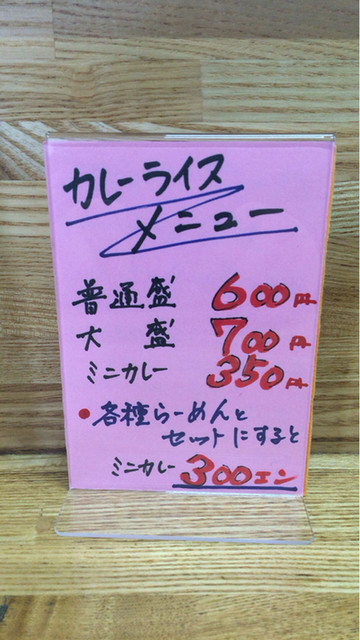 カレーライス
メニュー
普通盛 600円
大盛 700円
ミニカレー 350円
●各種らーめんと
セットにすると
ミニカレー 300エン